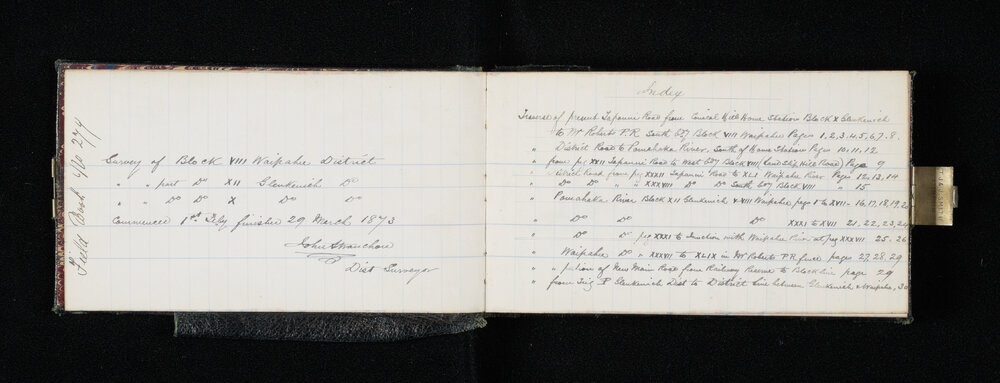 Field Book No 274
Survey of Block VIII Waipahi District
" " part Do XII Glenkenich Do
" " Do Do X Do Do
Commenced 1st Feby, finished 29 March 1873
John Strauchon
Dist Surveyor
Index
Traverse of present Tapanui Road from Conical Hill Home Station Block X Glenkenich
to Mr Roberts P.R. South Bdy Block VIII Waipahee Pages 1, 2, 3, 4, 5, 6, 7, 8.
" District Road to Pomahaka River. South of Home Station Pages 10, 11, 12
" from peg XXII Tapanui Road to West Bdy Block VIII (Land Slip Hill Road) Page 9
" District Road from peg XXXI Tapanui Road to XLI Waipahee River Pages 12, 13, 14
" Do Do " " XXXVIII Do Do South Bdy Block VIII " 15
" Pomahaka River Block XII Glenkenich & VIII Waipahee page 1 to XVII - 16, 17, 18, 19, 20
" Do Do Do XXXI to XVII 21, 22, 23, 24
" Do Do peg XXXI to Junction with Waipahee River at peg XXXVII 25 - 26
" Waipahee Do " XXXVII to XLIX in Mr Roberts P.R. fence pages 27, 28, 29
" " portion of New Main Road from Railway Reserve to Block line page 29
" from Trig P Glenkenich Dist to District line between Glenkenich & Waipahee, 30